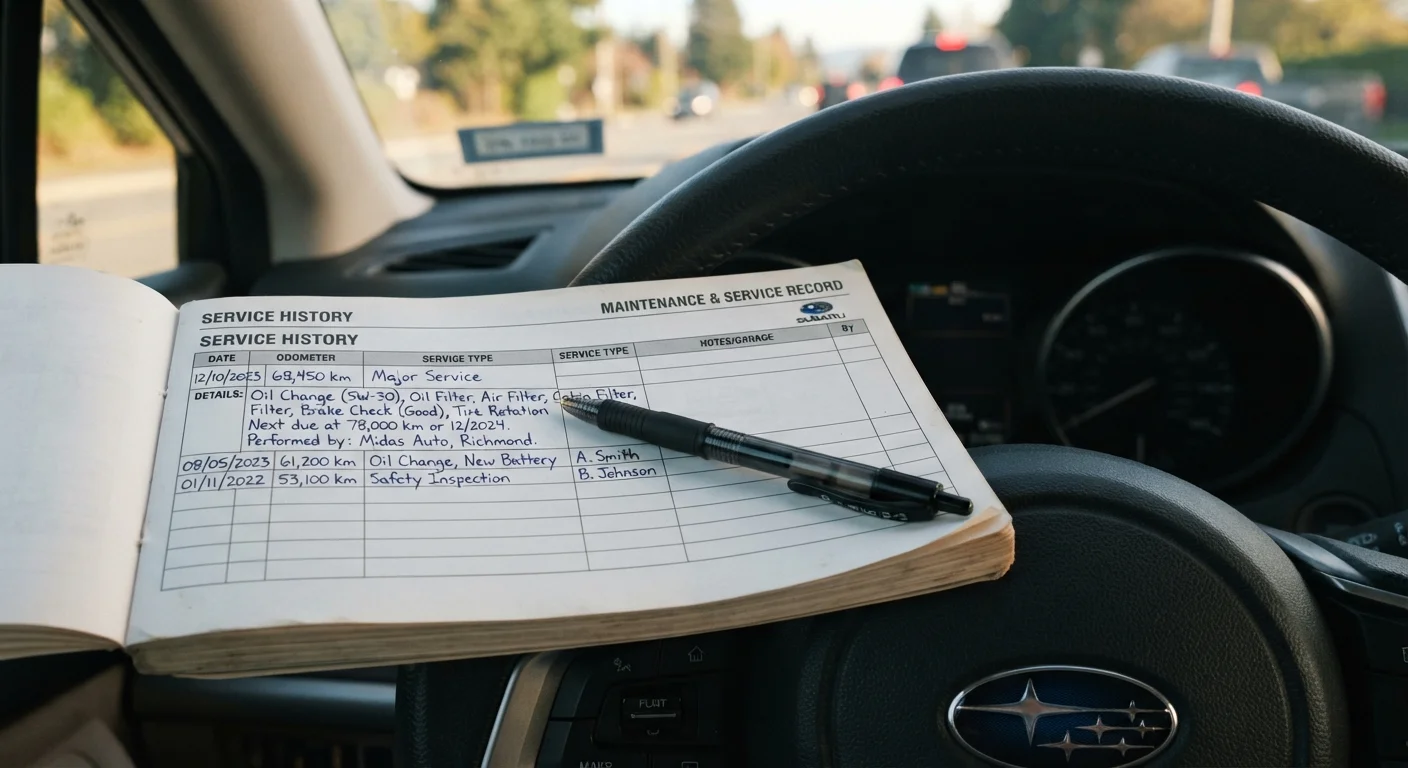 MAINTENANCE & SERVICE RECORD
SERVICE HISTORY
SUBARU
SERVICE HISTORY
DATE ODOMETER SERVIGE TYPE SERVICE TYPE NOTES/GARAGE BY
12/10/2023 68,450 km Major Service
DETAILS: Oil Change (5W-30), Oil Filter, Air Filter, Cabin Filter,
Filter, Brake Check (Good), Tire Rotation
Next due at 78,000 km or 12/2024.
Performed by: Midas Auto, Richmond.
08/05/2023 61,200 km Oil Change, New Battery A. Smith
01/11/2022 53,100 km Safety Inspection B. Johnson